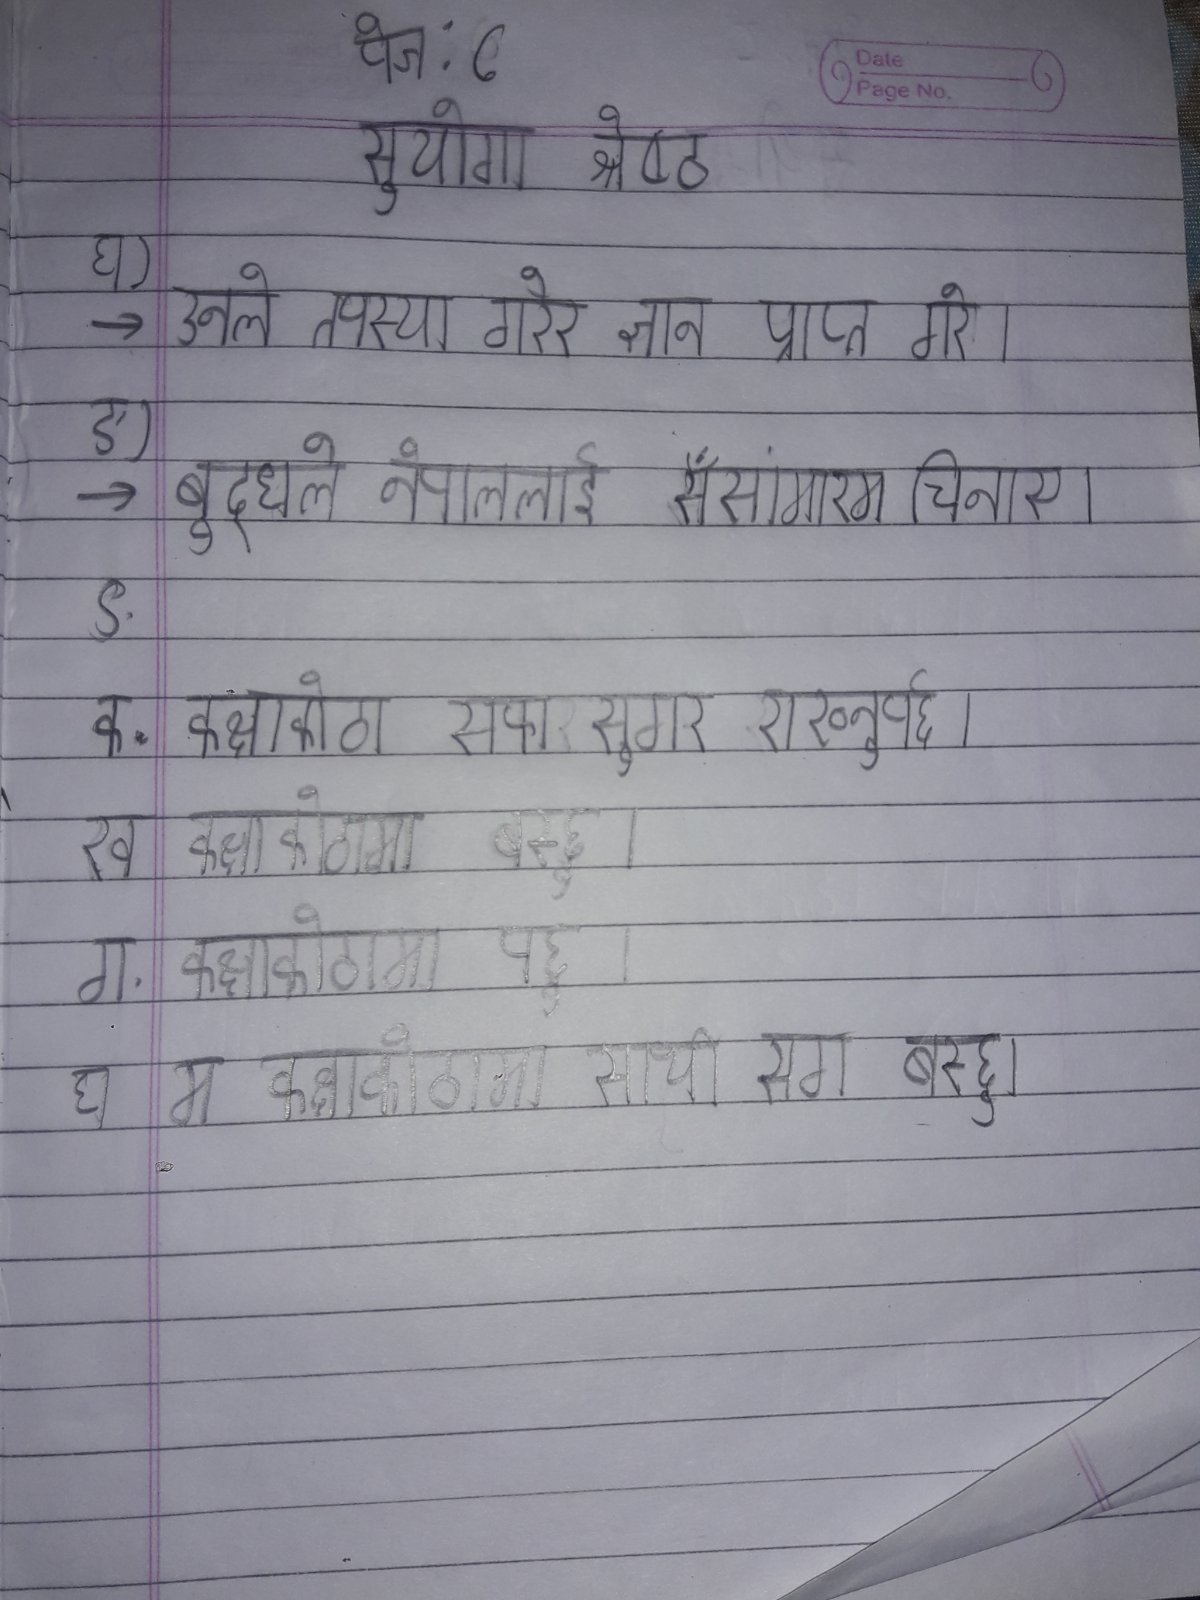 पेज: ८
Date
Page No.
सुयोगा श्रेष्ठ
घ)
→ उनले तपस्या गरेर ज्ञान प्राप्त गरे।
ङ)
→ बुद्धले नेपाललाई चिनाए।
ड.
क. कक्षाकोठा सफा सुगर राख्नुपर्छ।
ख कक्षाकोठामा बस्छु।
ग. कक्षाकोठामा पढ्छु।
घ म कक्षाकोठामा साथी सग बस्छु।